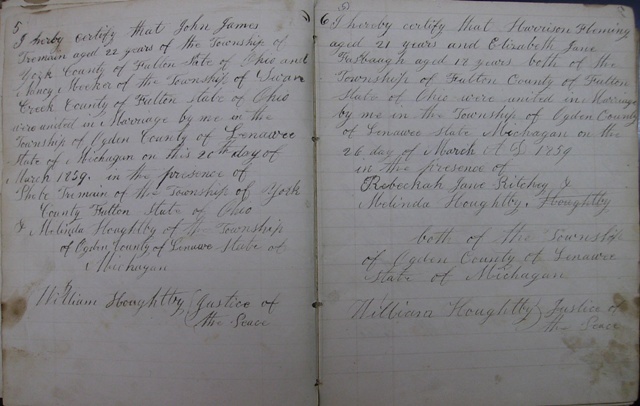 5
I hereby certify that John James
Tremain aged 22 years of the Township of
York County of Fulton State of Ohio and
Nancy Hooker of the Township of Swan
Creek County of Fulton state of Ohio
were united in Marriage by me in the
Township of Ogden County of Lenawee
State of Michagan on this 20th day of
March 1859. in the presence of
Phebe Tremain of the Township of York
County Fulton State of Ohio
& Melinda Houghtby of the Township
of Ogden County of Lenawe State of
Michagan
William Houghtby Justice of
the Peace
6 I hereby certify that Harrison Fleming
aged 21 years and Elizabeth Jane
aged 17 years both of the
Township of Fulton County of Fulton
State of Ohio were united in Marriage
by me in the Township of Ogden County
of Lenawee state Michagan on the
26 day of March AD 1859
in the presence of
Rebeckah Jane Ritchey &
Melinda Houghtby Houghtby
both of the Township
of Ogden County of Lenawee
State of Michagan
William Houghtby Justice of
the Peace